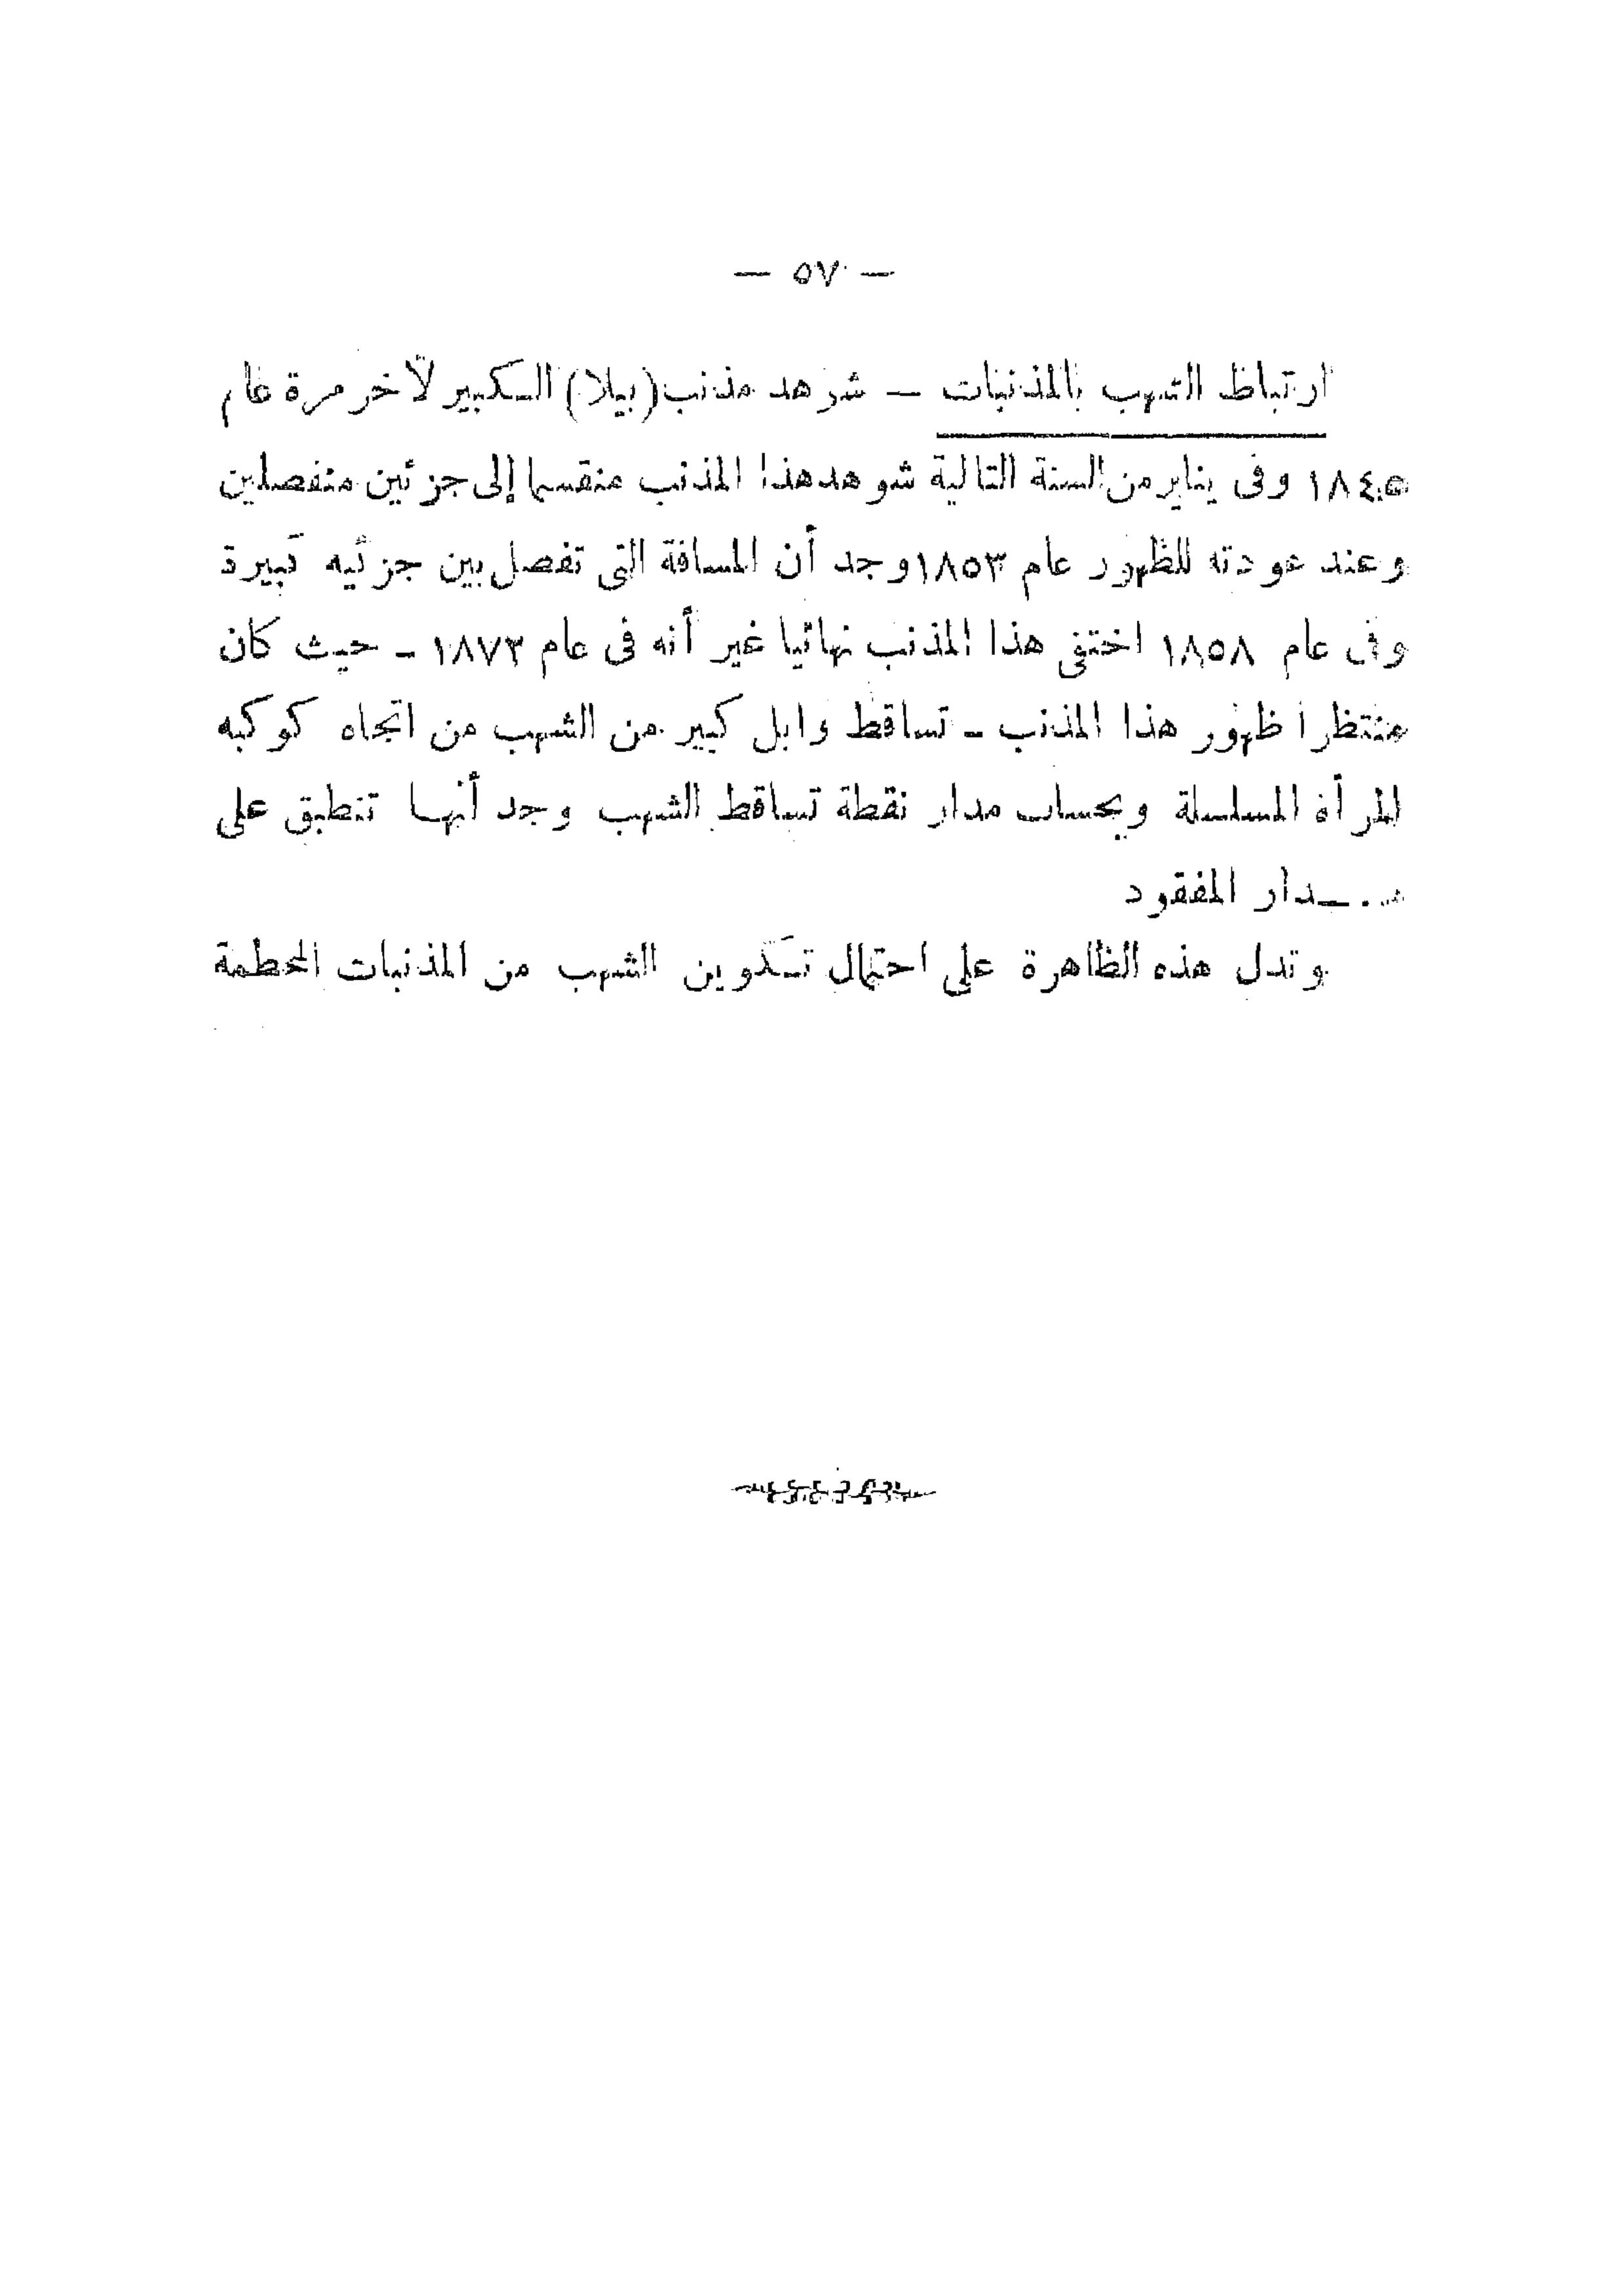 — ٥٧ —
ارتباط الشهب بالمذنبات — شوهد مذنب (بيلا) الكبير لآخر مرة عام
١٨٤٥ وفى يناير من السنة التالية شوهد هذا المذنب منقسما إلى جزئين منفصلين
وعند عودته للظهور عام ١٨٥٣ وجد أن المسافة التى تفصل بين جزئيه كبيرة
وفى عام ١٨٥٨ اختفى هذا المذنب نهائيا غير أنه فى عام ١٨٧٣ - حيث كان
منتظراً ظهور هذا المذنب - تساقط وابل كبير من الشهب من اتجاه كوكبه
المرأة المسلسلة وبحساب مدار نقطة تساقط الشهب وجد أنها تنطبق على
مدار المفقود
وتدل هذه الظاهرة على احتمال تكوين الشهب من المذنبات المحطمة